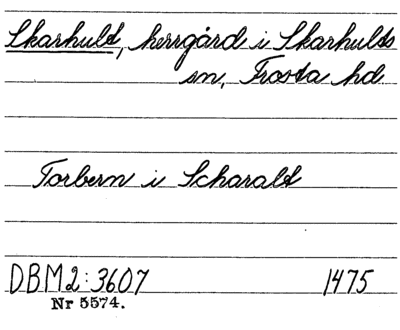 Skarhult, herrgård i Skarhults
sn, Frosta hd
Torbern i Scharalt
DBM2:3607 1475
Nr 5574.